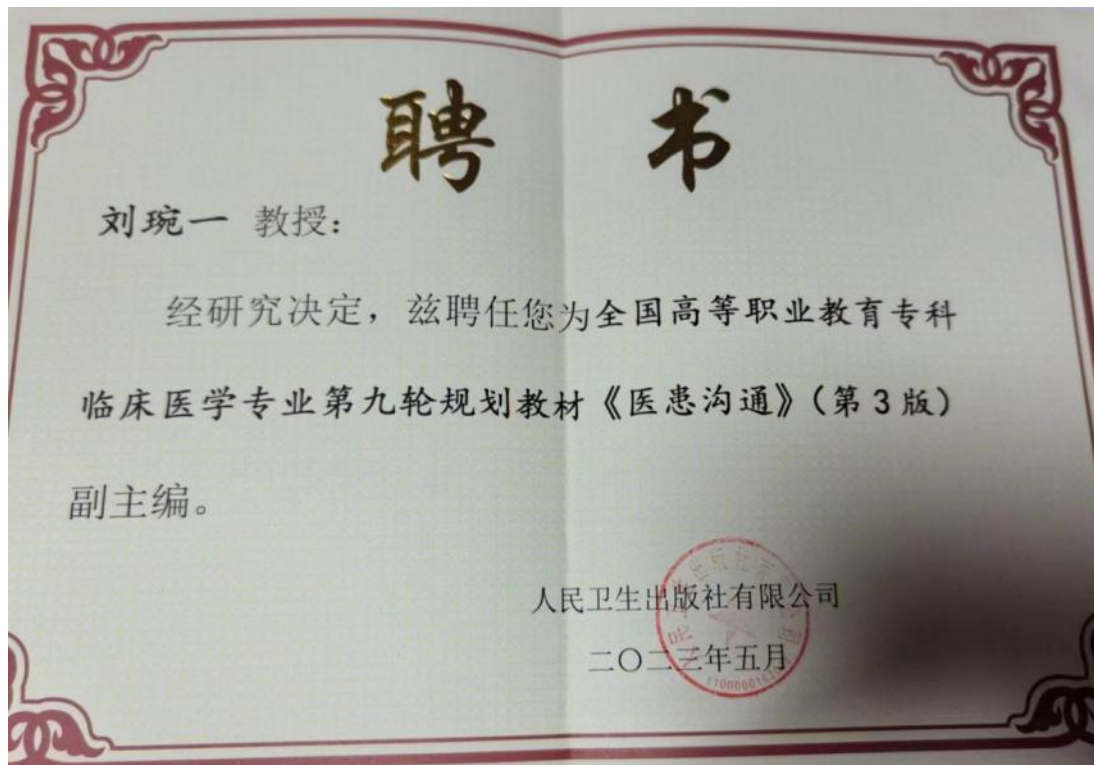 聘 书
刘琬一 教授：
经研究决定，兹聘任您为全国高等职业教育专科
临床医学专业第九轮规划教材《医患沟通》（第3版）
副主编。
人民卫生出版社有限公司
二〇二三年五月